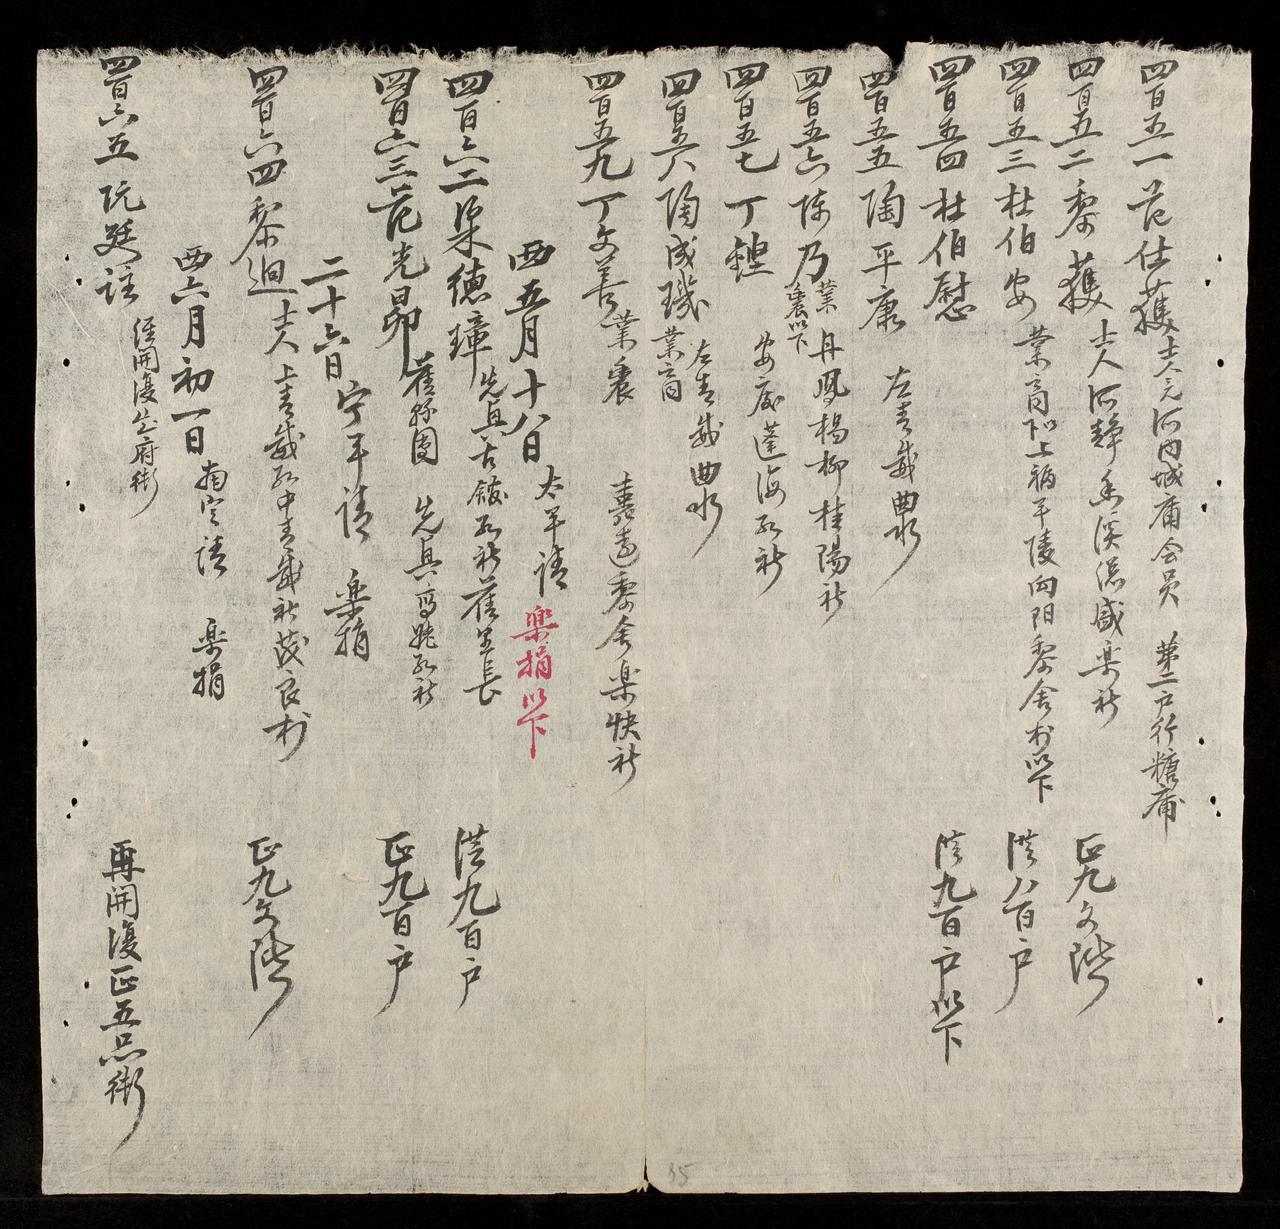 四百五一范仕蒦士人 河內城庯会员 第二戶行糖庯
四百五二黎蒦士人河靜 溪 盛楽社 正九文階
四百五三杜伯安業商 上福平陵向阳黎舍村以下 從八百户
四百五四杜伯慰 從九百户以下
四百五五陶平康 左青威曲水
四百五六陈乃業農以下 丹鳳楊柳桂陽社
四百五七丁鏗 安慶蓬海社
四百五八陶成璣業商 左青威曲水
四百五九丁文善業農 嘉遠黎舍楽快社
西五月十八日 太平請 楽捐以下
四百六二 德璋先真古 社舊里長 從九百户
四百六三范光昴舊 團 先真 社 正九百户
二十六日 宁平請 楽捐
四百六四黎廻士人上青威 中青威社茂良村 正九文階
西六月初一日 南定請 楽捐
四百六五阮廷註 經開復 府銜 再開復正五品銜
35